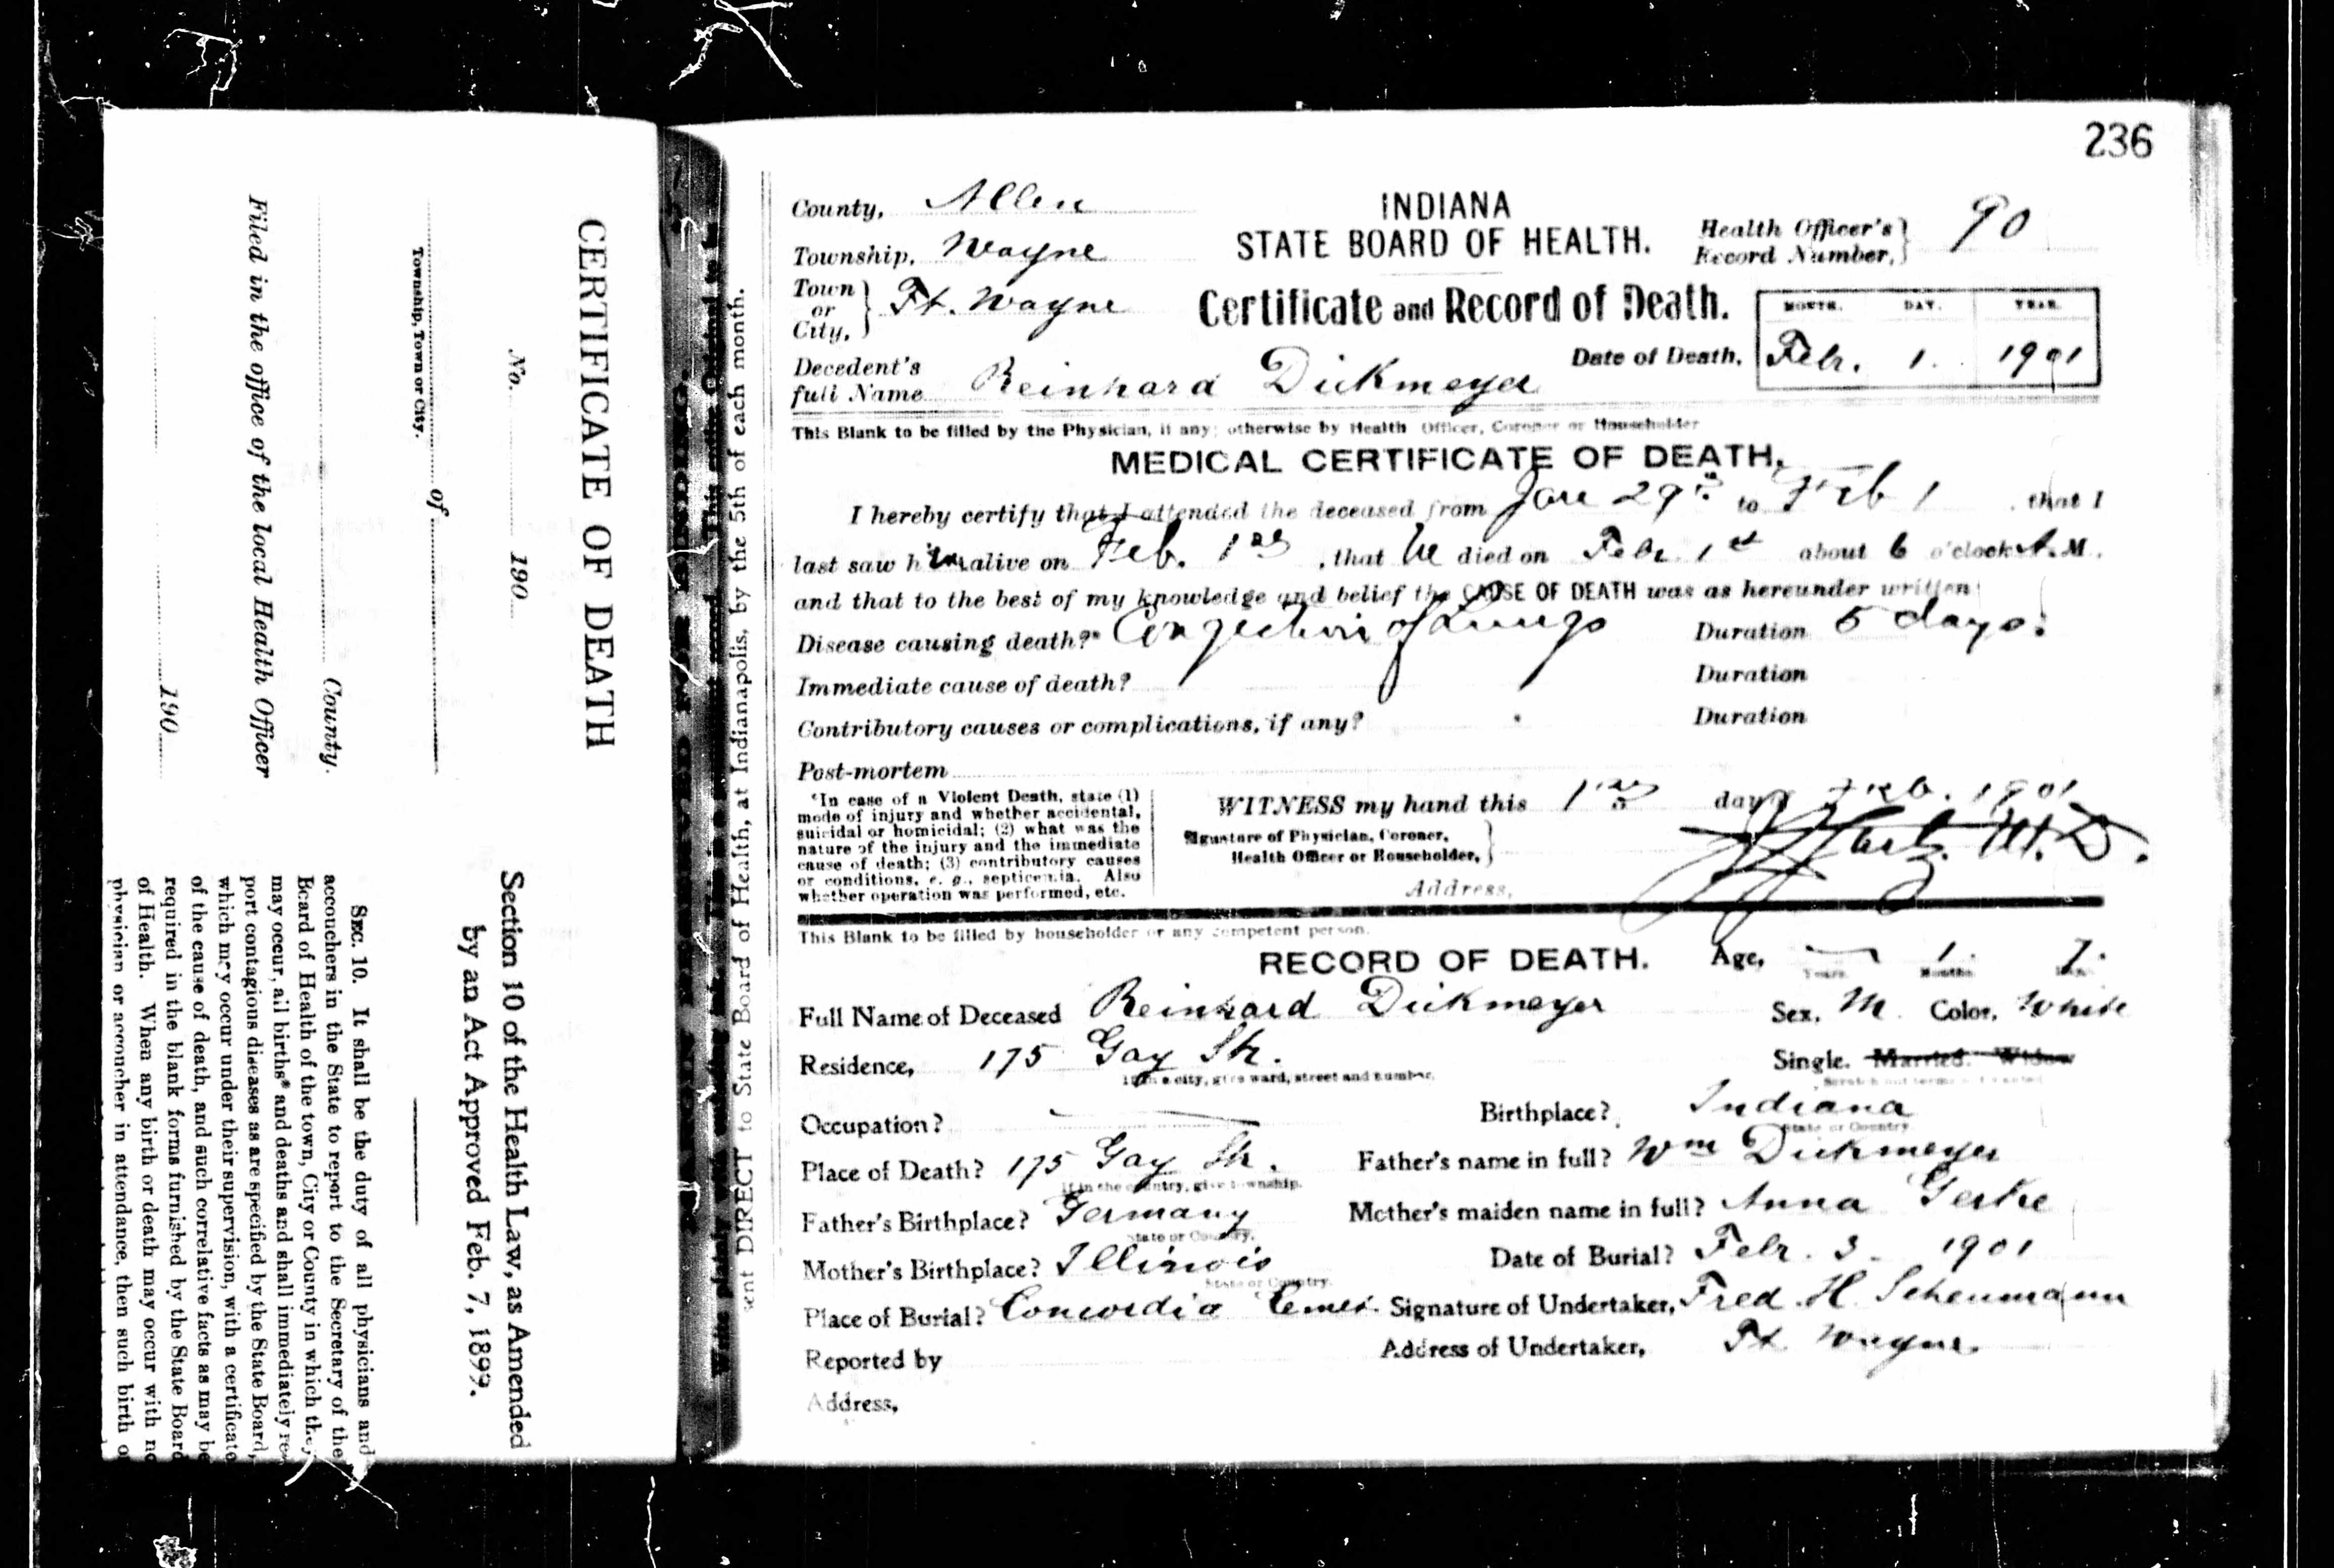 CERTIFICATE OF DEATH
No. 190
of
Township, Town or City.
County.
Filed in the office of the local Health Officer
190
Section 10 of the Health Law, as Amended
by an Act Approved Feb. 7, 1899.
SEC. 10. It shall be the duty of all physicians and
accouchers in the State to report to the Secretary of the
Board of Health of the town, City or County in which they
may occur, all births* and deaths and shall immediately re-
port contagious diseases as are specified by the State Board,
which may occur under their supervision, with a certificate
of the cause of death, and such correlative facts as may be
required in the blank forms furnished by the State Board
of Health. When any birth or death may occur with no
physician or accoucher in attendance, then such birth o
sent DIRECT to State Board of Health, at Indianapolis, by the 5th of each month.
236
County, Allen
Township, Wayne
Town or City, Ft. Wayne
INDIANA
STATE BOARD OF HEALTH.
Health Officer's Record Number, 90
Certificate and Record of Death.
MONTH. DAY. YEAR.
Date of Death, Febr. 1. 1901
Decedent's full Name Reinhard Dickmeyer
This Blank to be filled by the Physician, if any; otherwise by Health Officer, Coroner or Householder
MEDICAL CERTIFICATE OF DEATH.
I hereby certify that I attended the deceased from Jan 29th to Feb 1 , that I
last saw him alive on Feb. 1st , that he died on Febr. 1st about 6 o'clock A. M.
and that to the best of my knowledge and belief the CAUSE OF DEATH was as hereunder written
Disease causing death?* Congestion of Lungs Duration 5 days.
Immediate cause of death? Duration
Contributory causes or complications, if any? Duration
Post-mortem
*In case of a Violent Death, state (1)
mode of injury and whether accidental,
suicidal or homicidal; (2) what was the
nature of the injury and the immediate
cause of death; (3) contributory causes
or conditions, e. g., septicemia. Also
whether operation was performed, etc.
WITNESS my hand this 1st day of Feb. 1901
Signature of Physician, Coroner,
Health Officer or Householder, M.D.
Address,
This Blank to be filled by householder or any competent person.
RECORD OF DEATH.
Age, — Years 1. Months 7.
Full Name of Deceased Reinhard Dickmeyer
Sex, M. Color, White
Residence, 175 Gay Str.
If in a city, give ward, street and number.
Single. Married. Widow
Occupation? —
Birthplace? Indiana
State or Country.
Place of Death? 175 Gay Str.
If in the country, give township.
Father's name in full? Wm Dickmeyer
Father's Birthplace? Germany
State or Country.
Mother's maiden name in full? Anna Gerke
Mother's Birthplace? Illinois
State or Country.
Date of Burial? Febr. 3. 1901
Place of Burial? Concordia Cemet.
Signature of Undertaker, Fred. H. Scheumann
Reported by
Address of Undertaker, Ft. Wayne.
Address,